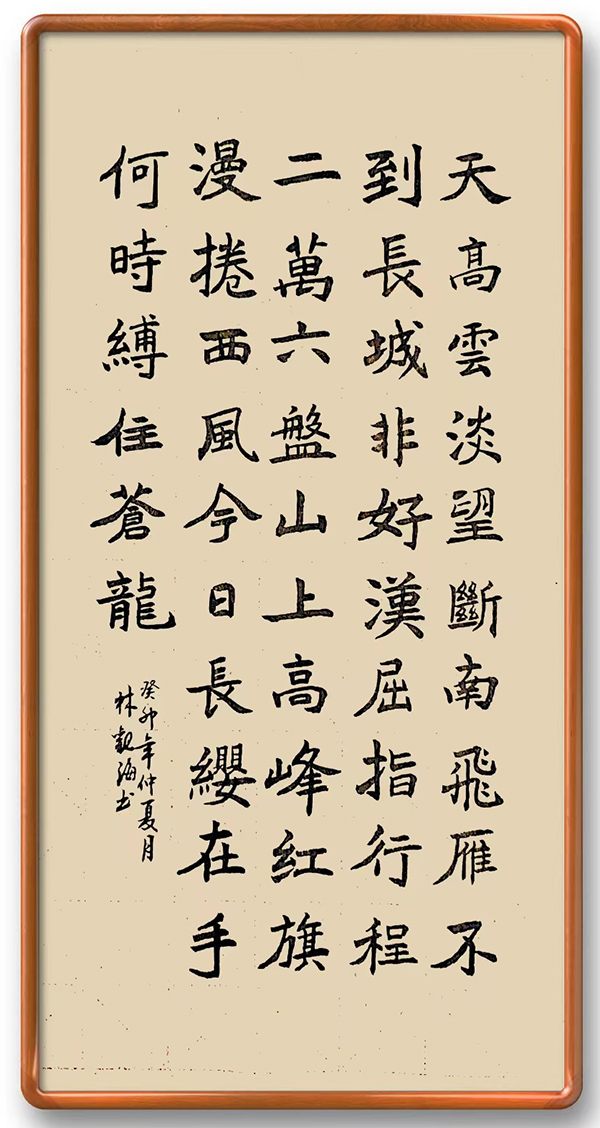 天高雲淡望斷南飛雁不
到長城非好漢屈指行程
二萬六盤山上高峰红旗
漫捲西風今日長纓在手
何時縛住蒼龍
癸卯年仲夏月
林觀海书